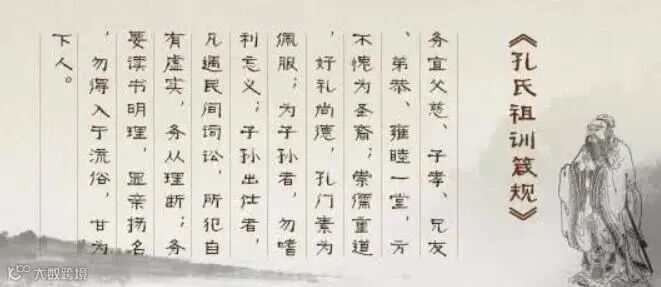 《孔氏祖训箴规》
务宜父慈、子孝、兄友
、弟恭、雍睦一堂，方
不愧为圣裔；崇儒重道
，好礼尚德，孔门素为
佩服；为子孙者，勿嗜
利忘义；子孙出仕者，
凡遇民间词讼，所犯自
有虚实，务从理断；务
要读书明理，显亲扬名
，勿得入于流俗，甘为
下人。
大数跨境